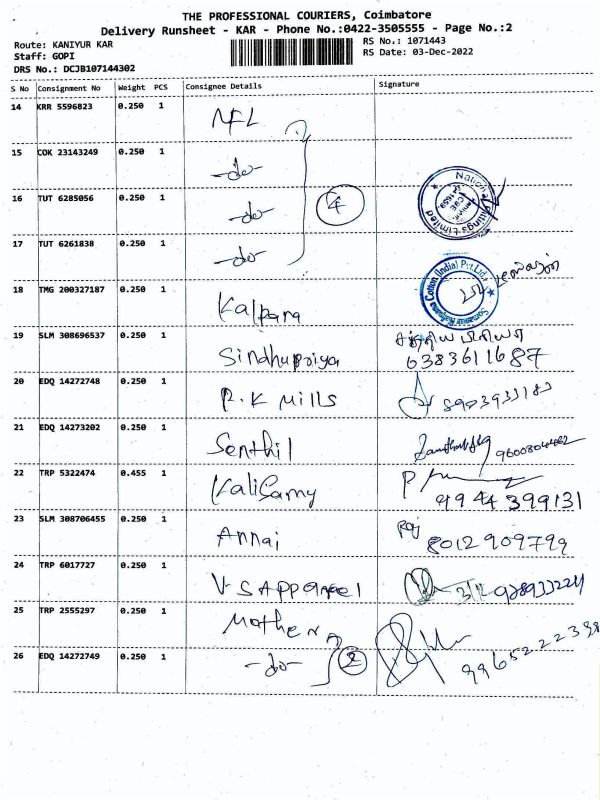 THE PROFESSIONAL COURIERS, Coimbatore
Delivery Runsheet - KAR - Phone No.:0422-3505555 - Page No.:2
Route: KANIYUR KAR
RS No.: 1071443
Staff: GOPI
RS Date: 03-Dec-2022
DRS No.: DCJB107144302
S No Consignment No Weight PCS Consignee Details Signature
14 KRR 5596823 0.250 1 NFL
15 COK 23143249 0.250 1 -do-
16 TUT 6285056 0.250 1 -do- 4 National Limited
17 TUT 6261838 0.250 1 -do-
18 TMG 200327187 0.250 1 Kalpana Cotton (India) Pvt Ltd.
19 SLM 308696537 0.250 1 Sindhupriya 6383611687
20 EDQ 14272748 0.250 1 P.K Mills 8903933183
21 EDQ 14273202 0.250 1 Senthil 9600804482
22 TRP 5322474 0.455 1 Kalisamy 9944399131
23 SLM 308706455 0.250 1 Annai Raj 8012909799
24 TRP 6017727 0.250 1 V S Apparel 3/12
25 TRP 2555297 0.250 1 Mother
26 EDQ 14272749 0.250 1 -do- 2 9965222398